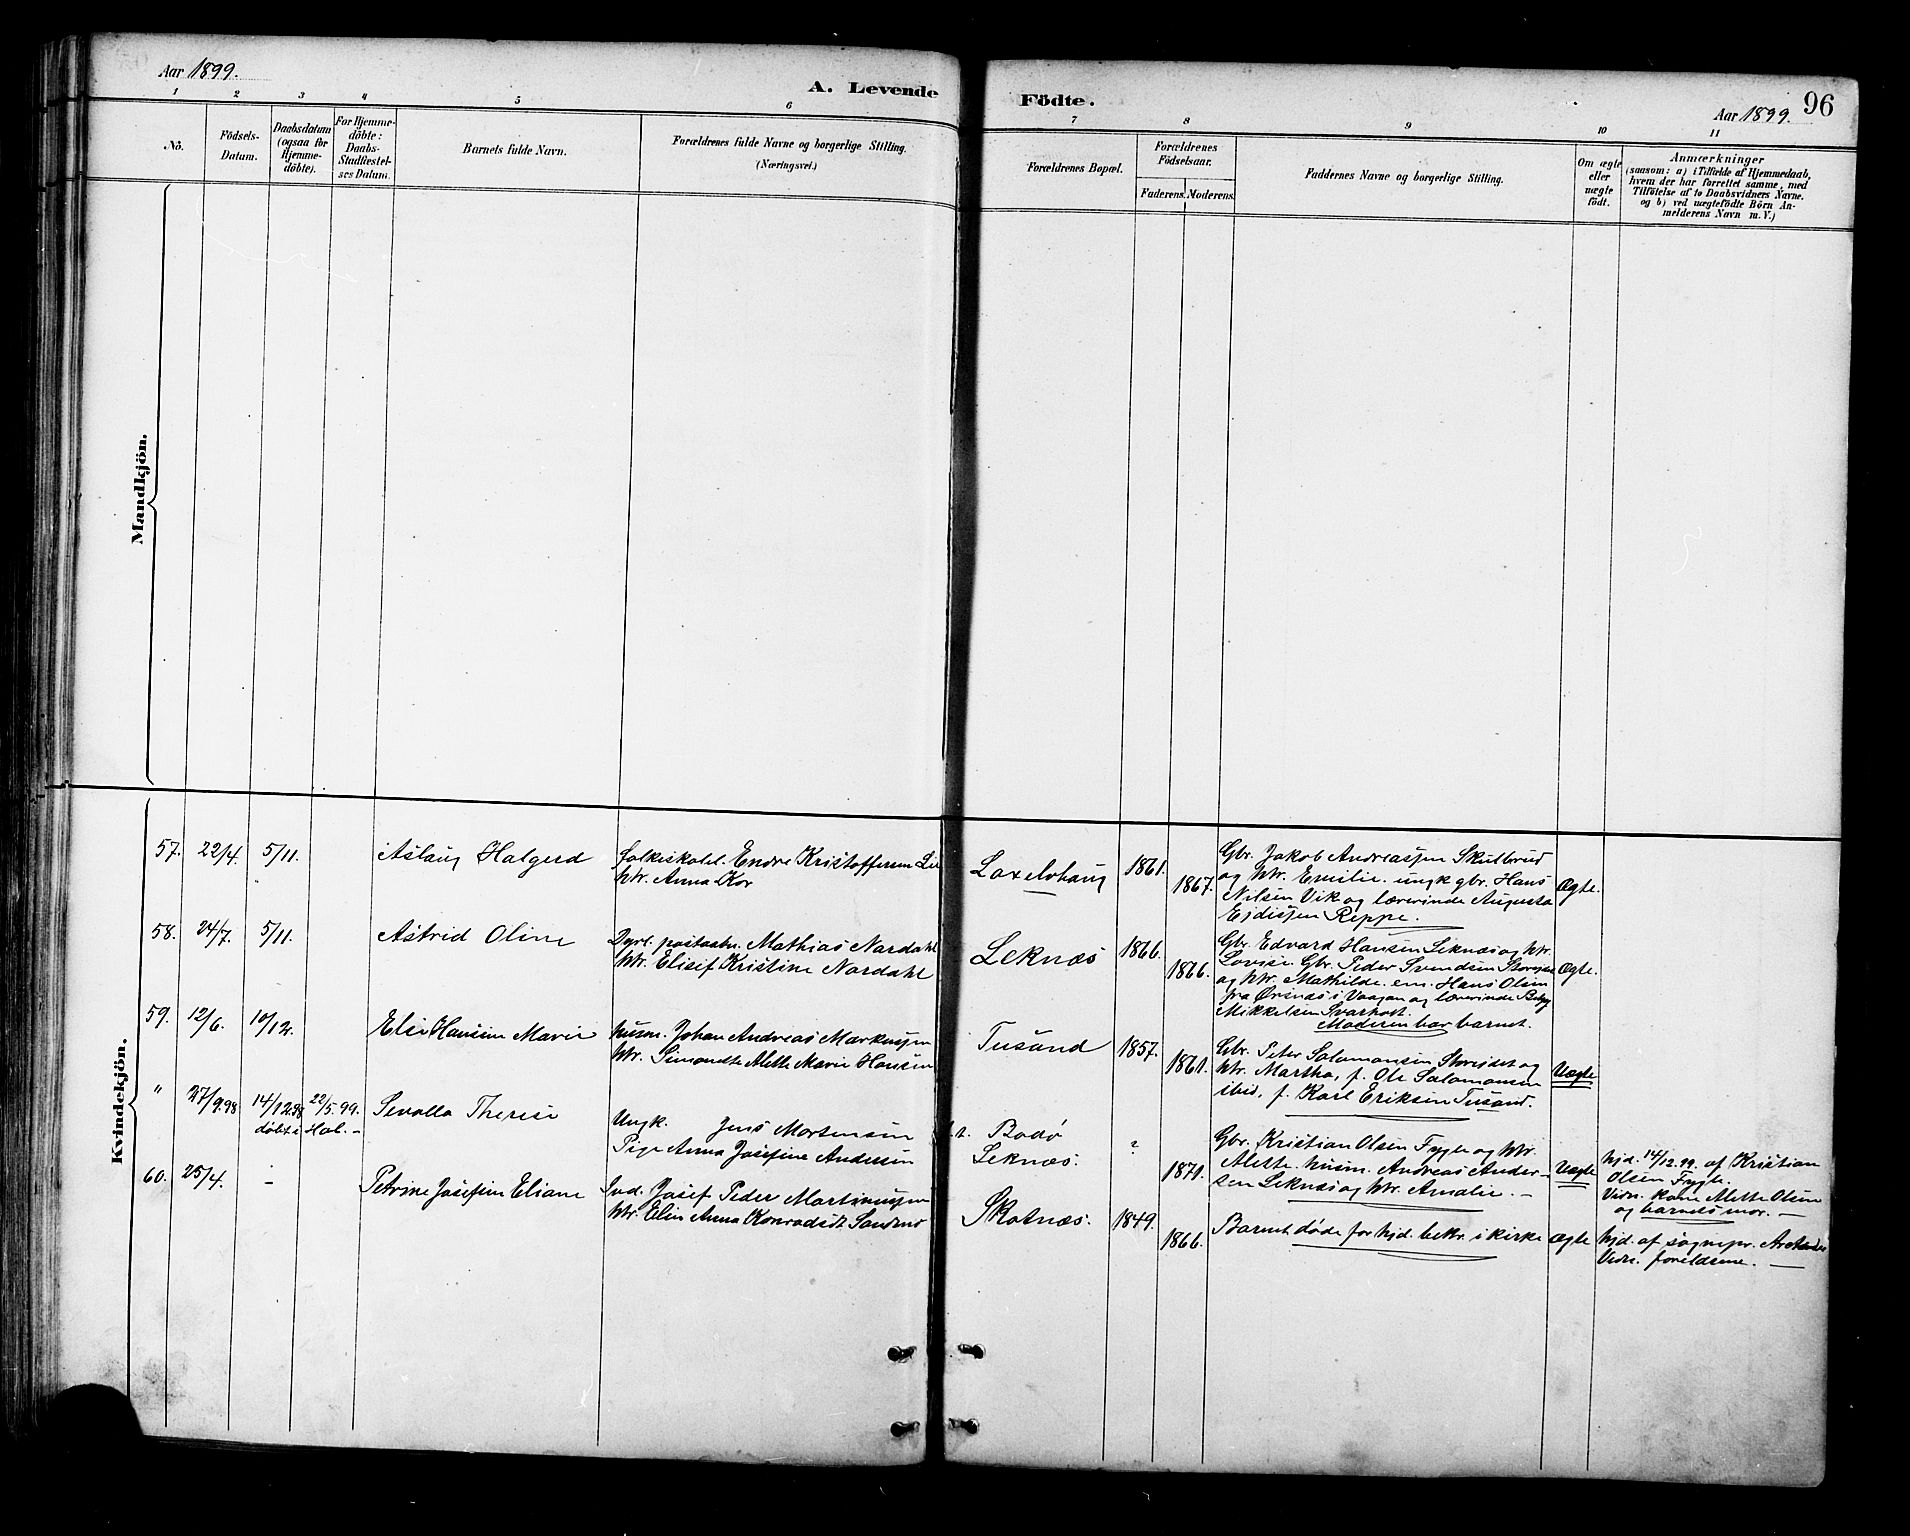 Aar 1899.
A. Levende
Födte.
Aar 1899.
96
1 2 3 4 5 6
7 8 9 10 11
No.
Födsels-
Datum.
Daabsdatum
(ogsaa för
Hjemme-
döbte).
For Hjemme-
döbte:
Daabs-
Stadfæstel-
ses Datum.
Barnets fulde Navn.
Forældrenes fulde Navne og borgerlige Stilling.
(Næringsvei.)
Forældrenes Bopæl.
Forældrenes
Födselsaar.
Faderens. Moderens.
Faddernes Navne og borgerlige Stilling.
Om ægte
eller
uægte
födt.
Anmærkninger
(saasom: a) i Tilfælde af Hjemmedaab,
hvem der har forrettet samme, med
Tilföielse af to Daabsvidners Navne,
og b) ved uægtefödte Börn An-
melderens Navn m. V.)
Mandkjön.
Kvindekjön.
57. 22/4. 5/11. Aslaug Halgerd
Endre Kristoffersen
Htr. Anna Kor
Laxelvhaug 1861. 1867.
Gbr. Jakob Andreassen Skulbrud
og htr. Emilie. ungk. gbr. Hans
Nilsen Vik og lærerinde Augusta
Reppe.
Ægte.
58. 24/7. 5/11. Astrid Oline
Dyrl. postaabn. Mathias Nordahl
htr. Elisif Kristine Nordahl
Leknæs 1866. 1866.
Gbr. Edvard Hansen Leknæs og htr.
Lovise. Gbr. Peder Svendsen
og htr. Mathilde. em. Hans Olsen
fra Örsnæs i Vaagan og lærerinde
Mikkelsen Svarholt.
Moderen bar barnet.
Ægte.
59. 12/6. 10/12. Else Hansine Marie
husm. Johan Andreas Markussen
htr. Alette Marie Hansen
Tusand 1857. 1861.
Gbr. Peter Salamonsen og
htr. Martha, f. Ole Salamonsen
ibid, f. Karl Eriksen Tusand.
Uægte
" 27/9.98 14/12.98 22/5.99.
döbt i Hol.-
Therese
Ungk. Jens Mortensen
Pige Anna Josefine Andersen
Bodø
Leknæs.
?
1871.
Gbr. Kristian Olsen Fygle og htr.
Alette. husm. Andreas Ander-
sen Leknæs og htr. Amalie. -
Uægte
hjd. 14/12.99. af Kristian
Olsen Fygle.
Vidn. kone Alette Olsen
og barnets mor. -
60. 25/4. - Petrine Josefine Eliane
Ind. Josef Peder Martinussen
htr. Elen Anna
Skotnæs. 1849. 1866.
Barnet døde før hjd. bekr. i kirke
Ægte
hjd. af sognepr.
Vidn. foreldrene. -